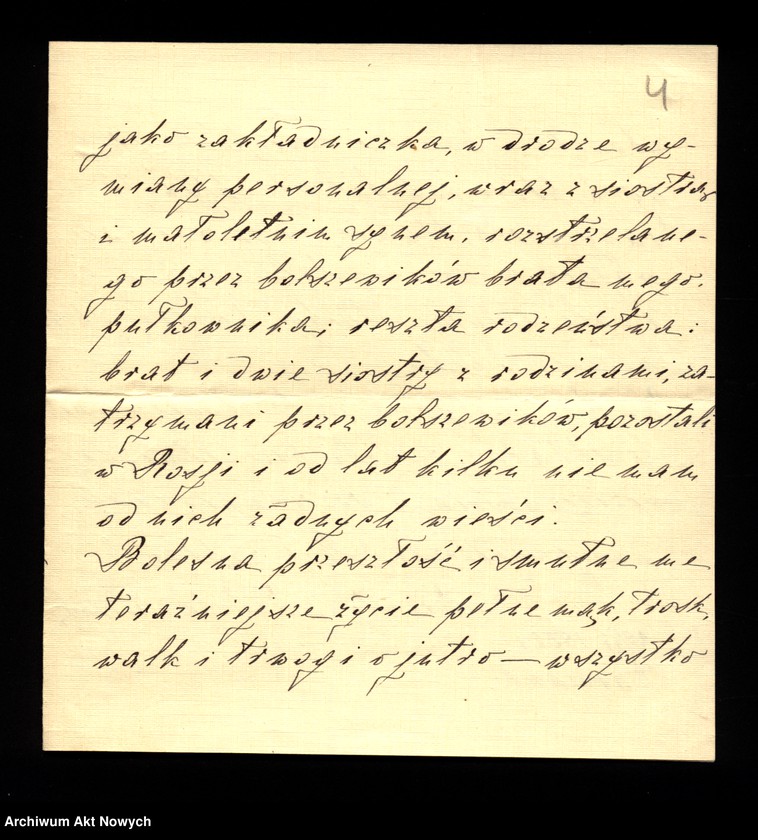 4
jako zakładniczka, w drodze wy-
miany personalnej, wraz z siostrą
i małoletnim synem, rozstrzelane-
go przez bolszewików brata mego,
pułkownika; reszta rodzeństwa:
brat i dwie siostry z rodzinami, za-
trzymani przez bolszewików, pozostali
w Rosji i od lat kilku nie mam
od nich żadnych wieści.
Bolesna przeszłość i smutne me
teraźniejsze życie pełne mąk, trosk,
walk i trwogi o jutro — wszystko
Archiwum Akt Nowych